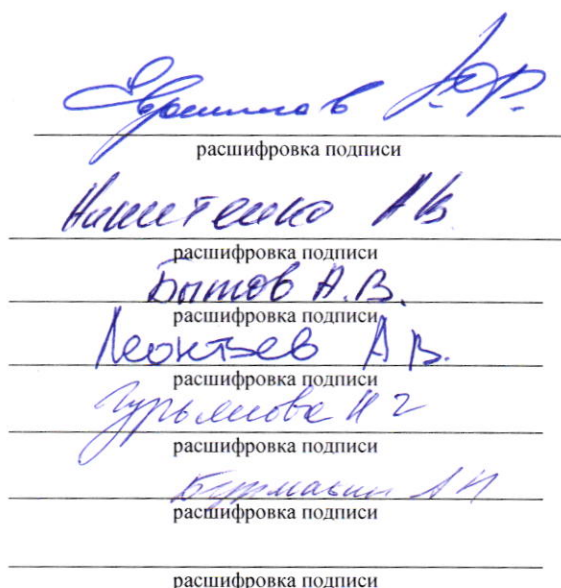 расшифровка подписи
Никитенко А В
расшифровка подписи
Бытов А.В.
расшифровка подписи
Леонтьев А В.
расшифровка подписи
Гурьянова Н Г
расшифровка подписи
расшифровка подписи
расшифровка подписи